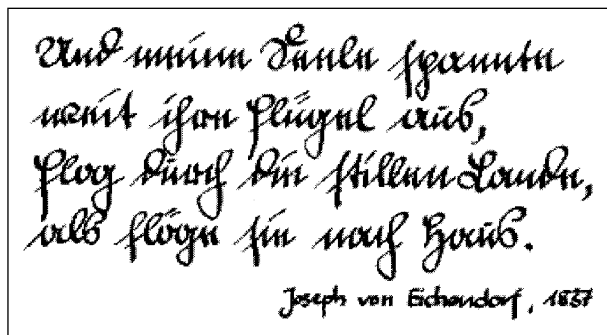 Und meine Seele spannte
weit ihre Flügel aus,
Flog durch die stillen Lande,
als flöge sie nach Haus.
Joseph von Eichendorf, 1837